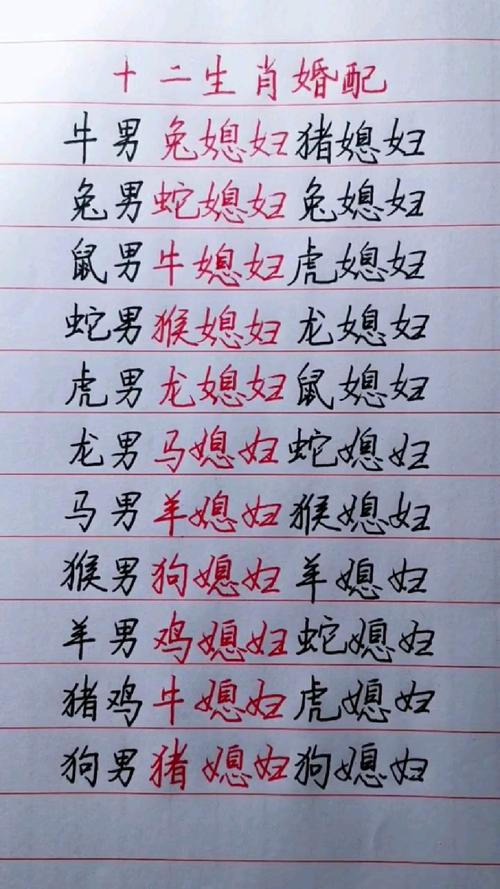 十二生肖婚配
牛男兔媳妇猪媳妇
兔男蛇媳妇兔媳妇
鼠男牛媳妇虎媳妇
蛇男猴媳妇龙媳妇
虎男龙媳妇鼠媳妇
龙男马媳妇蛇媳妇
马男羊媳妇猴媳妇
猴男狗媳妇羊媳妇
羊男鸡媳妇蛇媳妇
猪鸡牛媳妇虎媳妇
狗男猪媳妇狗媳妇